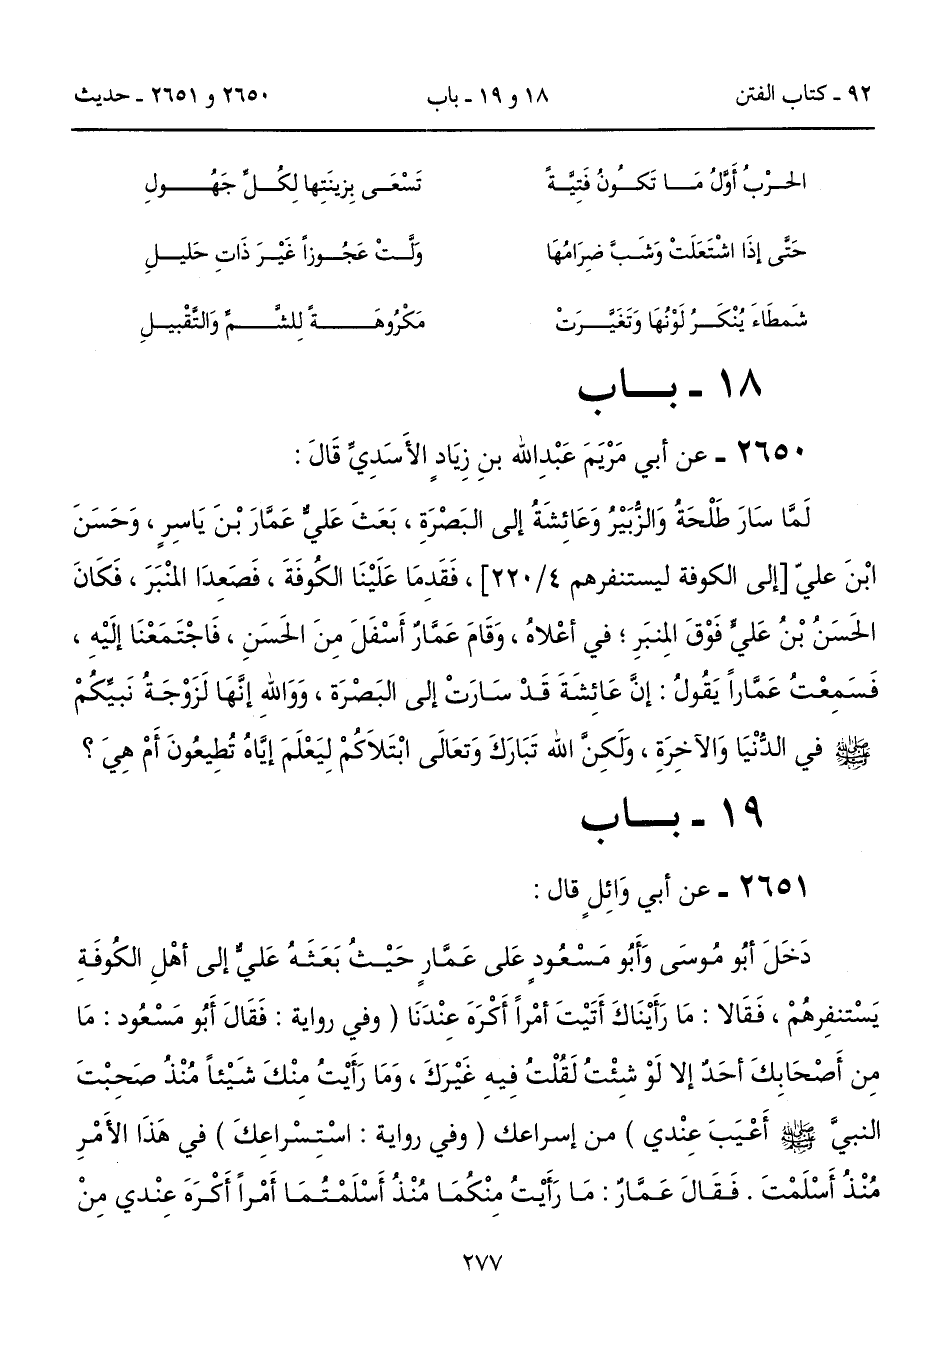 ٩٢ ـ كتاب الفتن ١٨ و ١٩ ـ باب ٢٦٥٠ و ٢٦٥١ ـ حديث
الحَرْبُ أَوَّلُ مَا تَكُونُ فَتِيَّةً تَسْعَى بِزِينَتِها لِكُلِّ جَهُولِ
حَتَّى إِذَا اشْتَعَلَتْ وَشَبَّ ضِرَامُهَا وَلَّتْ عَجُوزاً غَيْرَ ذَاتِ حَلِيلِ
شَمطَاءَ يُنْكَرُ لَوْنُهَا وَتَغَيَّرَتْ مَكْرُوهَةً لِلشَّمِّ وَالتَّقْبيلِ
١٨ ـ باب
٢٦٥٠ ـ عن أبي مَرْيَمَ عَبْدِالله بنِ زِيَادٍ الأَسَدِيِّ قَالَ :
لَمَّا سَارَ طَلْحَةُ وَالزُّبَيْرُ وَعَائِشَةُ إلى البَصْرَةِ ، بَعَثَ عَليٌّ عَمَّارَ بْنَ يَاسرٍ ، وَحَسَنَ
ابْنَ عليّ [إلى الكوفة ليستنفرهم ٤/٢٢٠] ، فَقَدِمَا عَلَيْنَا الكُوفَةَ ، فَصَعِدَا المْنْبَرَ ، فَكَانَ
الحَسَنُ بْنُ عَليٍّ فَوْقَ المِنبَرِ ؛ في أعْلاهُ ، وَقَامَ عَمَّارٌ أَسْفَلَ مِنَ الحَسَنِ ، فَاجْتَمَعْنَا إلَيْهِ ،
فَسَمِعْتُ عَمَّاراً يَقُولُ : إنَّ عَائِشَةَ قَدْ سَارَتْ إلى البَصْرَةِ ، وَوَاللهِ إنَّهَا لَزَوْجَةُ نَبيِّكُمْ
ﷺ في الدُّنْيَا وَالآخِرَةِ ، وَلَكِنَّ الله تَبَارَكَ وَتعَالَى ابْتَلاَكُمْ لِيَعْلَمَ إيَّاهُ تُطِيعُونَ أَمْ هِيَ ؟
١٩ ـ باب
٢٦٥١ ـ عن أبي وَائِلٍ قال :
دَخَلَ أبُو مُوسَى وَأَبُو مَسْعُودٍ عَلى عَمَّارٍ حَيْثُ بَعَثَهُ عَليٌّ إلى أهْلِ الكُوفَةِ
يَسْتَنفِرهُمْ ، فَقَالا : مَا رَأَيْنَاكَ أَتَيْتَ أمْراً أَكْرَهَ عِنْدَنَا ( وفي رواية : فَقَالَ أَبُو مَسْعُود : مَا
مِن أَصْحَابِكَ أحَدٌ إلا لَوْ شِئْتُ لَقُلْتُ فِيهِ غَيْرَكَ ، وَمَا رَأَيْتُ مِنْكَ شَيْئاً مُنْذُ صَحِبْتَ
النبيَّ ﷺ أَعْيَبَ عِنْدي ) من إسراعك ( وفي رواية : اسْتِسْراعِكَ ) في هَذَا الأَمْرِ
مُنْذُ أَسْلَمْتَ . فَقَالَ عَمَّارٌ : مَا رَأَيْتُ مِنْكُمَا مُنْذُ أَسْلَمْتُمَا أَمْراً أَكْرَهَ عِنْدي مِنْ
٢٧٧